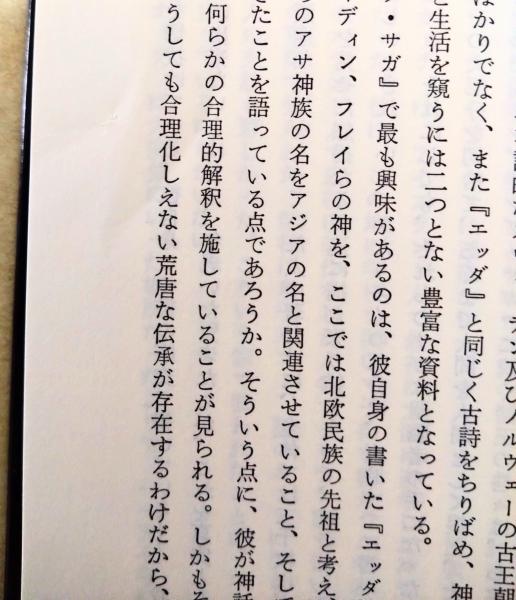 デン及びノルウェーの古王朝
ばかりでなく、また『エッダ』と同じく古詩をちりばめ、神
生活を窺うには二つとない豊富な資料となっている。
・サガ』で最も興味があるのは、彼自身の書いた『エッダ
ディン、フレイらの神を、ここでは北欧民族の先祖と考え、
のアサ神族の名をアジアの名と関連させていること、そして
きたことを語っている点であろうか。そういう点に、彼が神話
何らかの合理的解釈を施していることが見られる。しかもそ
うしても合理化しえない荒唐な伝承が存在するわけだから、